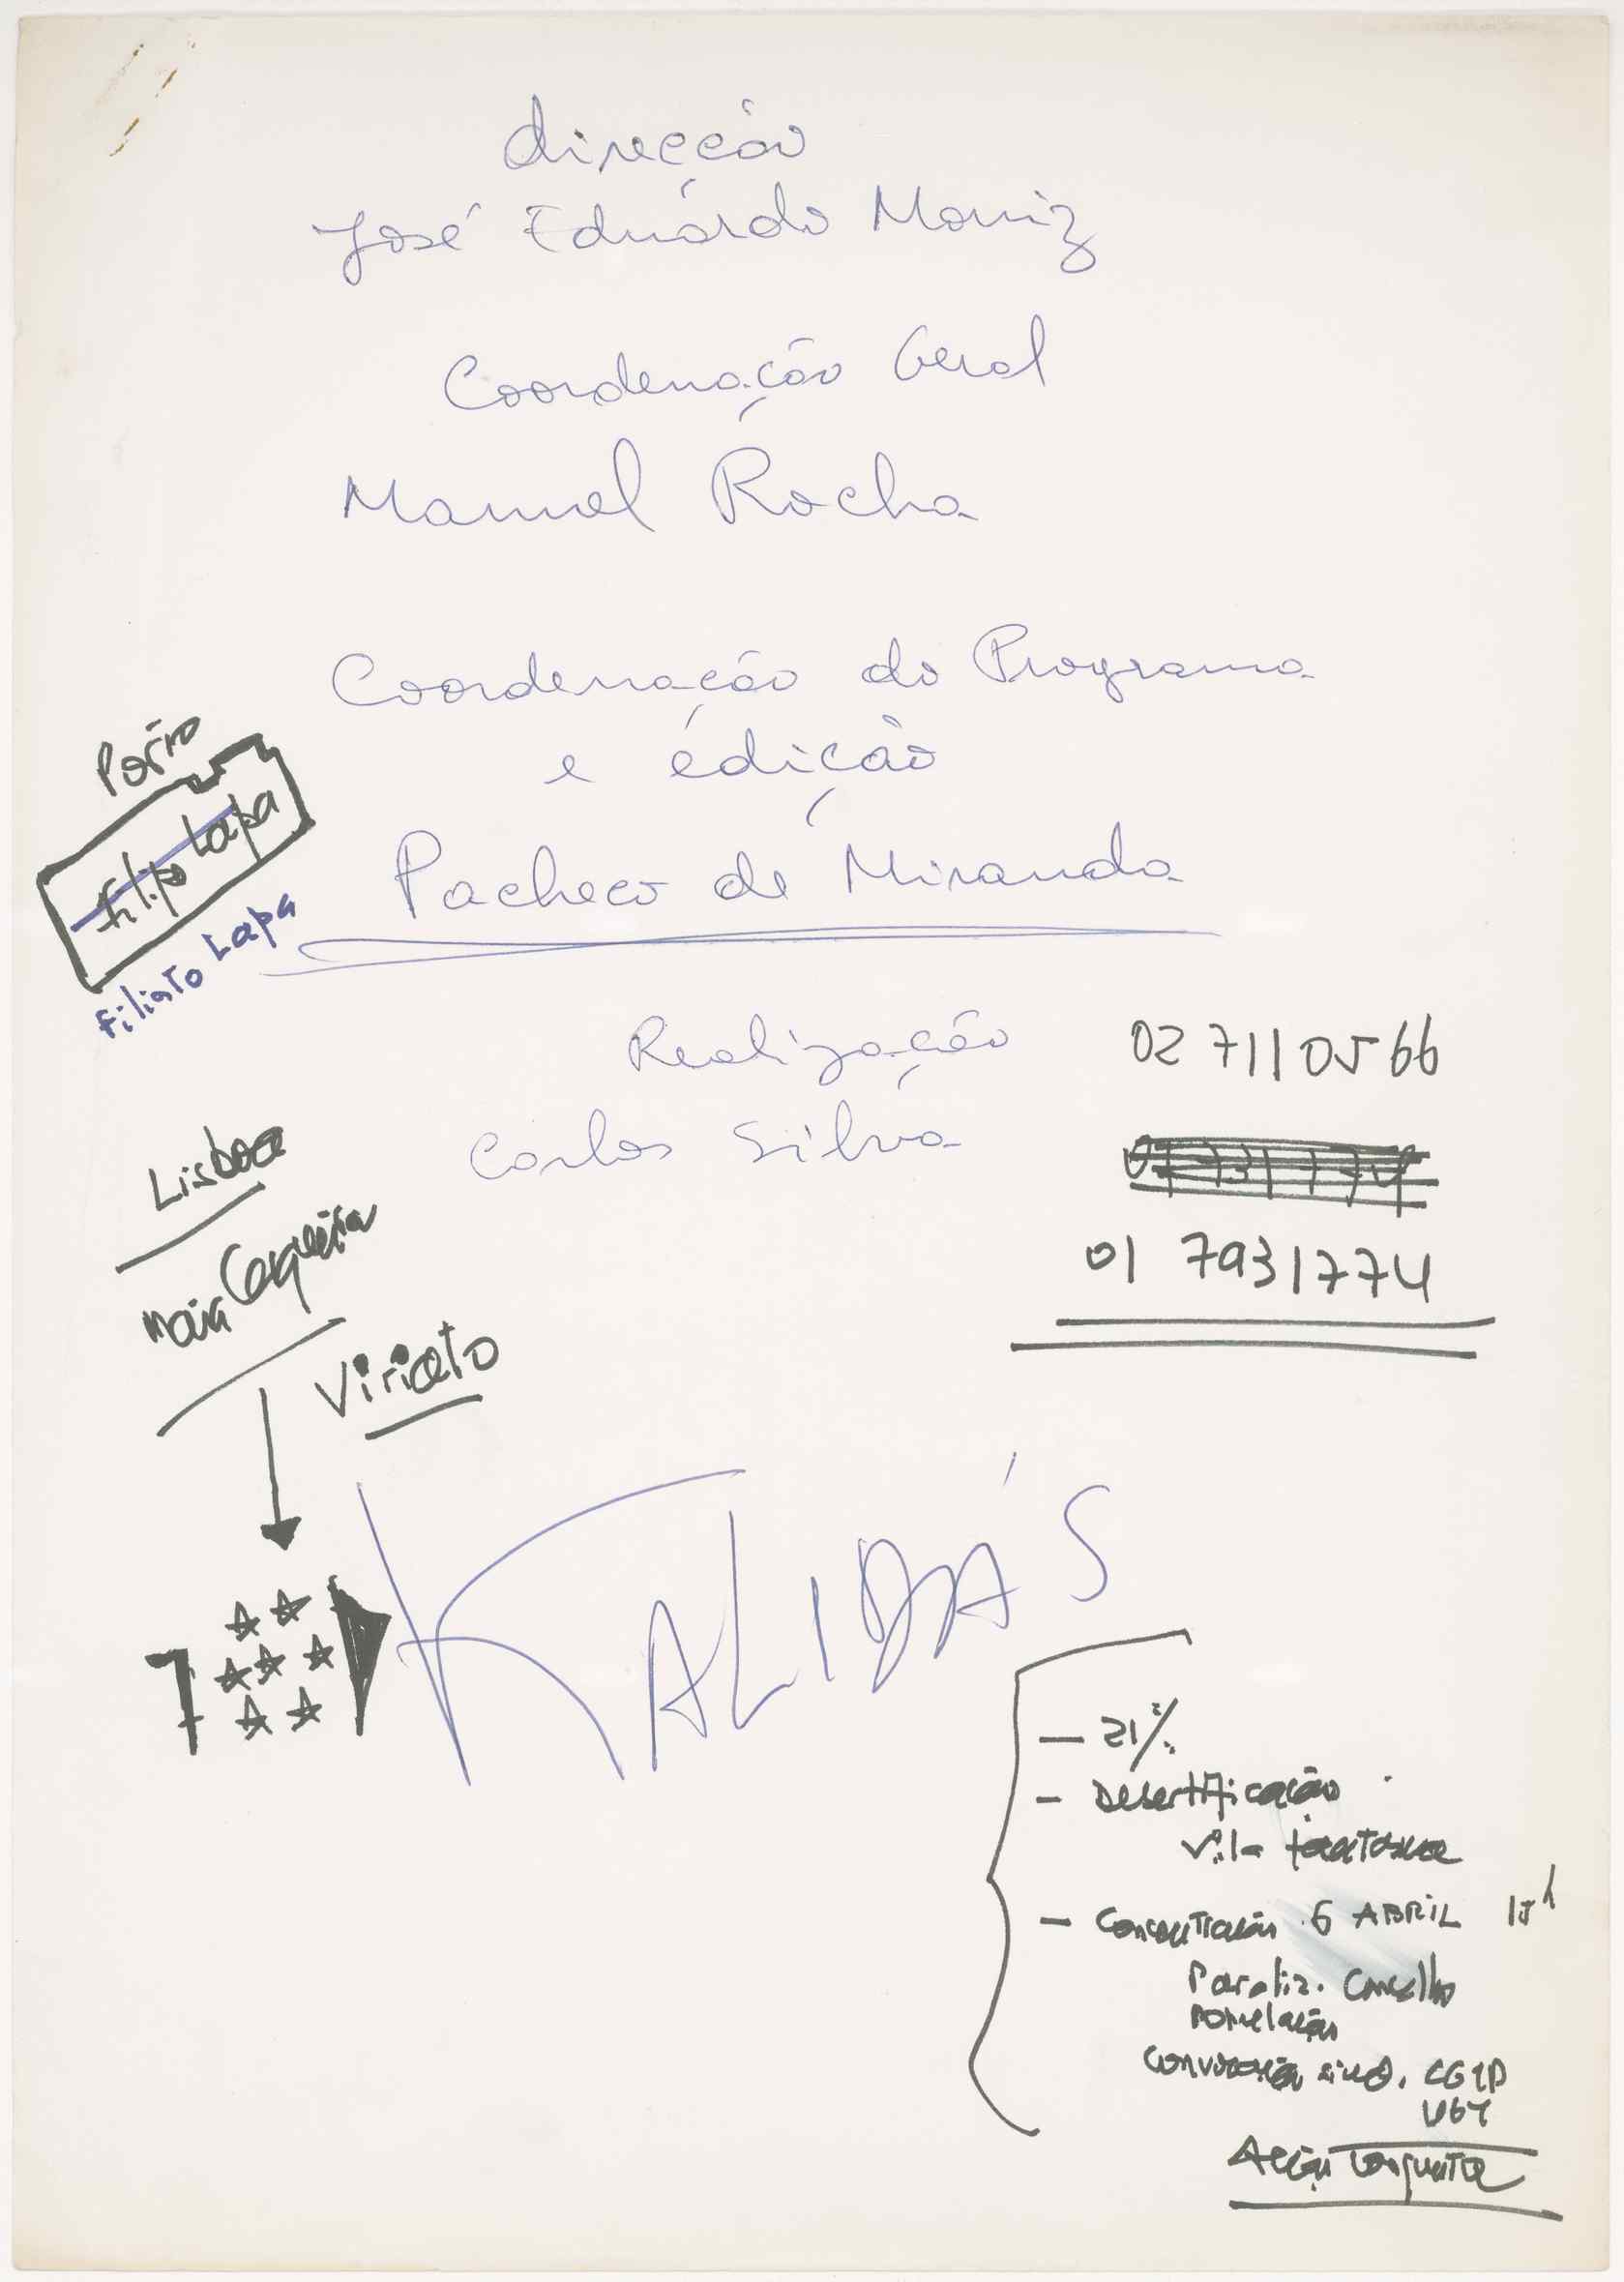 direcção
José Eduardo Moniz
Coordenação Geral
Manuel Rocha
Coordenação do Programa
e edição
Pacheco de Miranda
Porto
Filipo Lapa
Filiato Lapa
Realização
Carlos Silva
02 7110566
01 7931774
01 7931774
Lisboa
Maia Cerqueira
Viriato
KALIDÁS
— 21%
— Desertificação
Vila
— Concentração 6 ABRIL 15h
Paraliz. Concelho
População
Convocação sind. CGTP
UGT
Acção conjunta